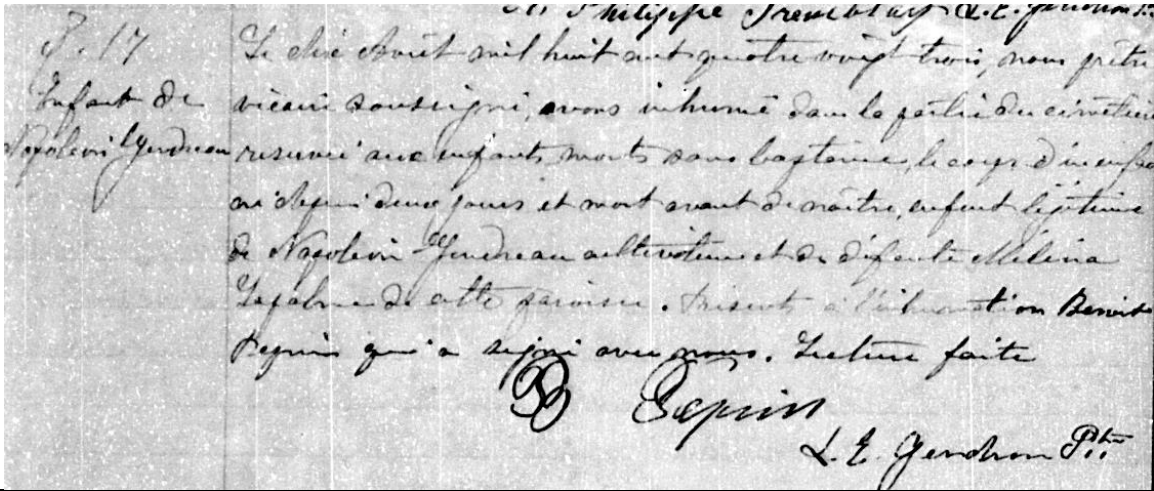 Philippe Tremblay L. E. Gendron Ptre
S. 17
Enfant de
Napoléon Gendreau
Le dix Août mil huit cent quatre vingt trois, nous prêtre
vicaire soussigné, avons inhumé dans la partie du cimetière
reservée aux enfants morts sans baptême, le corps d'un enfant
né depuis deux jours et mort avant de naître, enfant légitime
de Napoléon Gendreau cultivateur et de défunte Mélina
de cette paroisse. Présents à l'inhumation Benoit
Pepin qui a signé avec nous. Lecture faite
B Pepin
L. E. Gendron Ptre